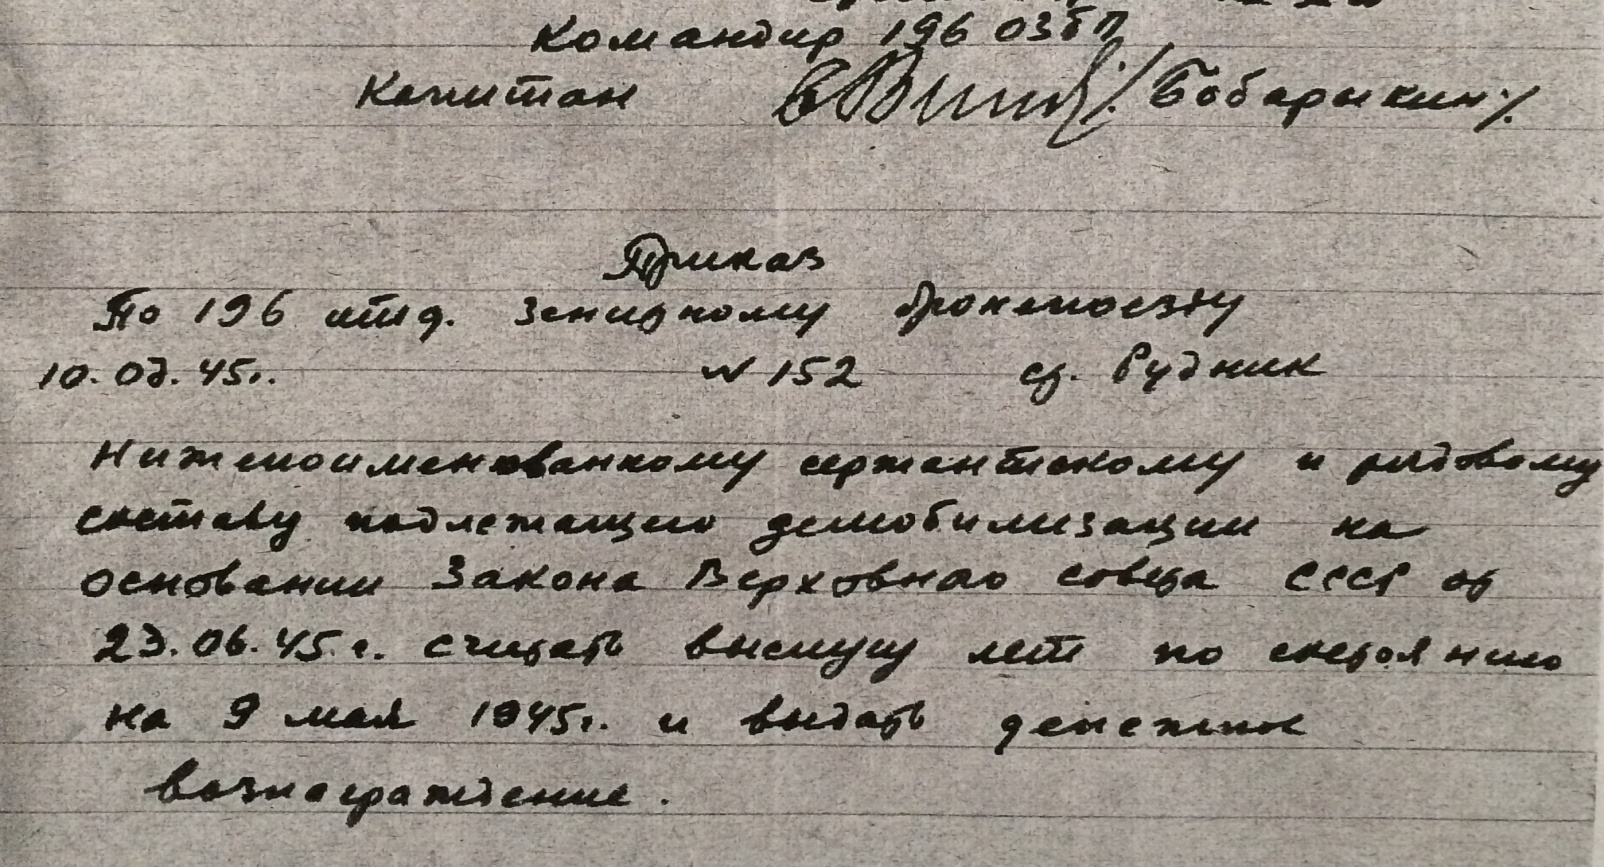 Командир 196 ОЗБП
Капитан /Бобарыкин/.
Приказ
По 196 отд. Зенитному бронепоезду
10. 45г. № 152 ст. Рудник
Нижепоименованному сержантскому и рядовому
составу подлежащего демобилизации на
основании Закона Верховного совета СССР от
23.06.45.г. считать выслугу лет по состоянию
на 9 мая 1945г. и выдать денежное
вознаграждение.